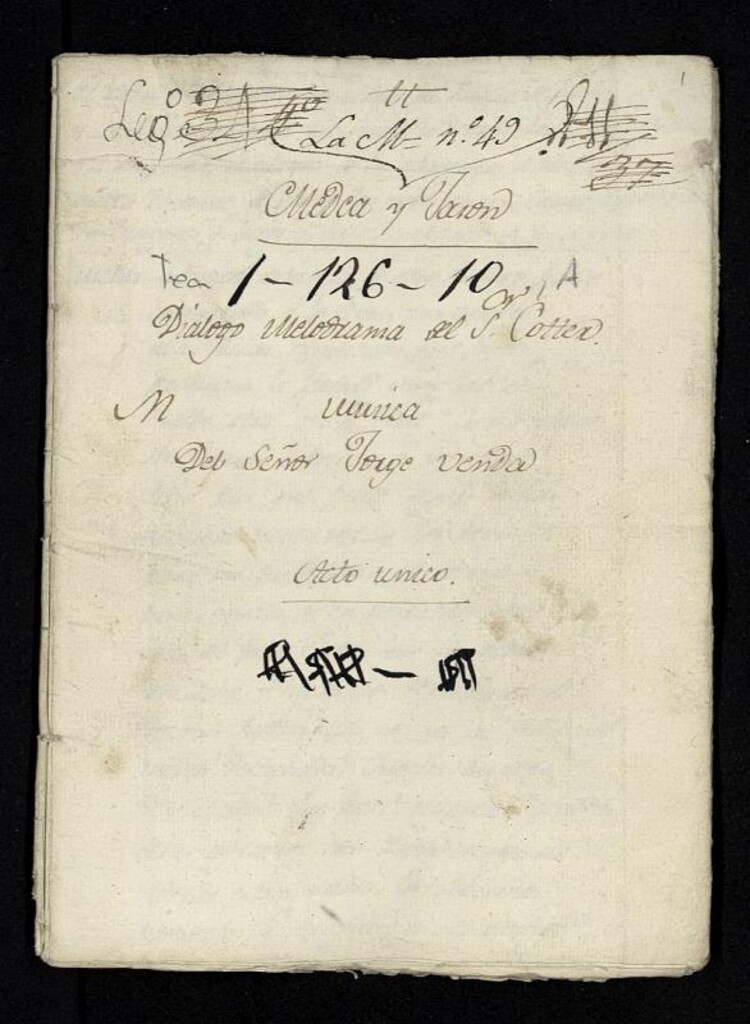 1
tt
Leg.o
La M= n.o 49
37
Medea y Jason
Tea 1-126-10, A
Dialogo Melodrama del S.or Cotter.
M Musica
Del Señor Jorge Venda
Acto unico.